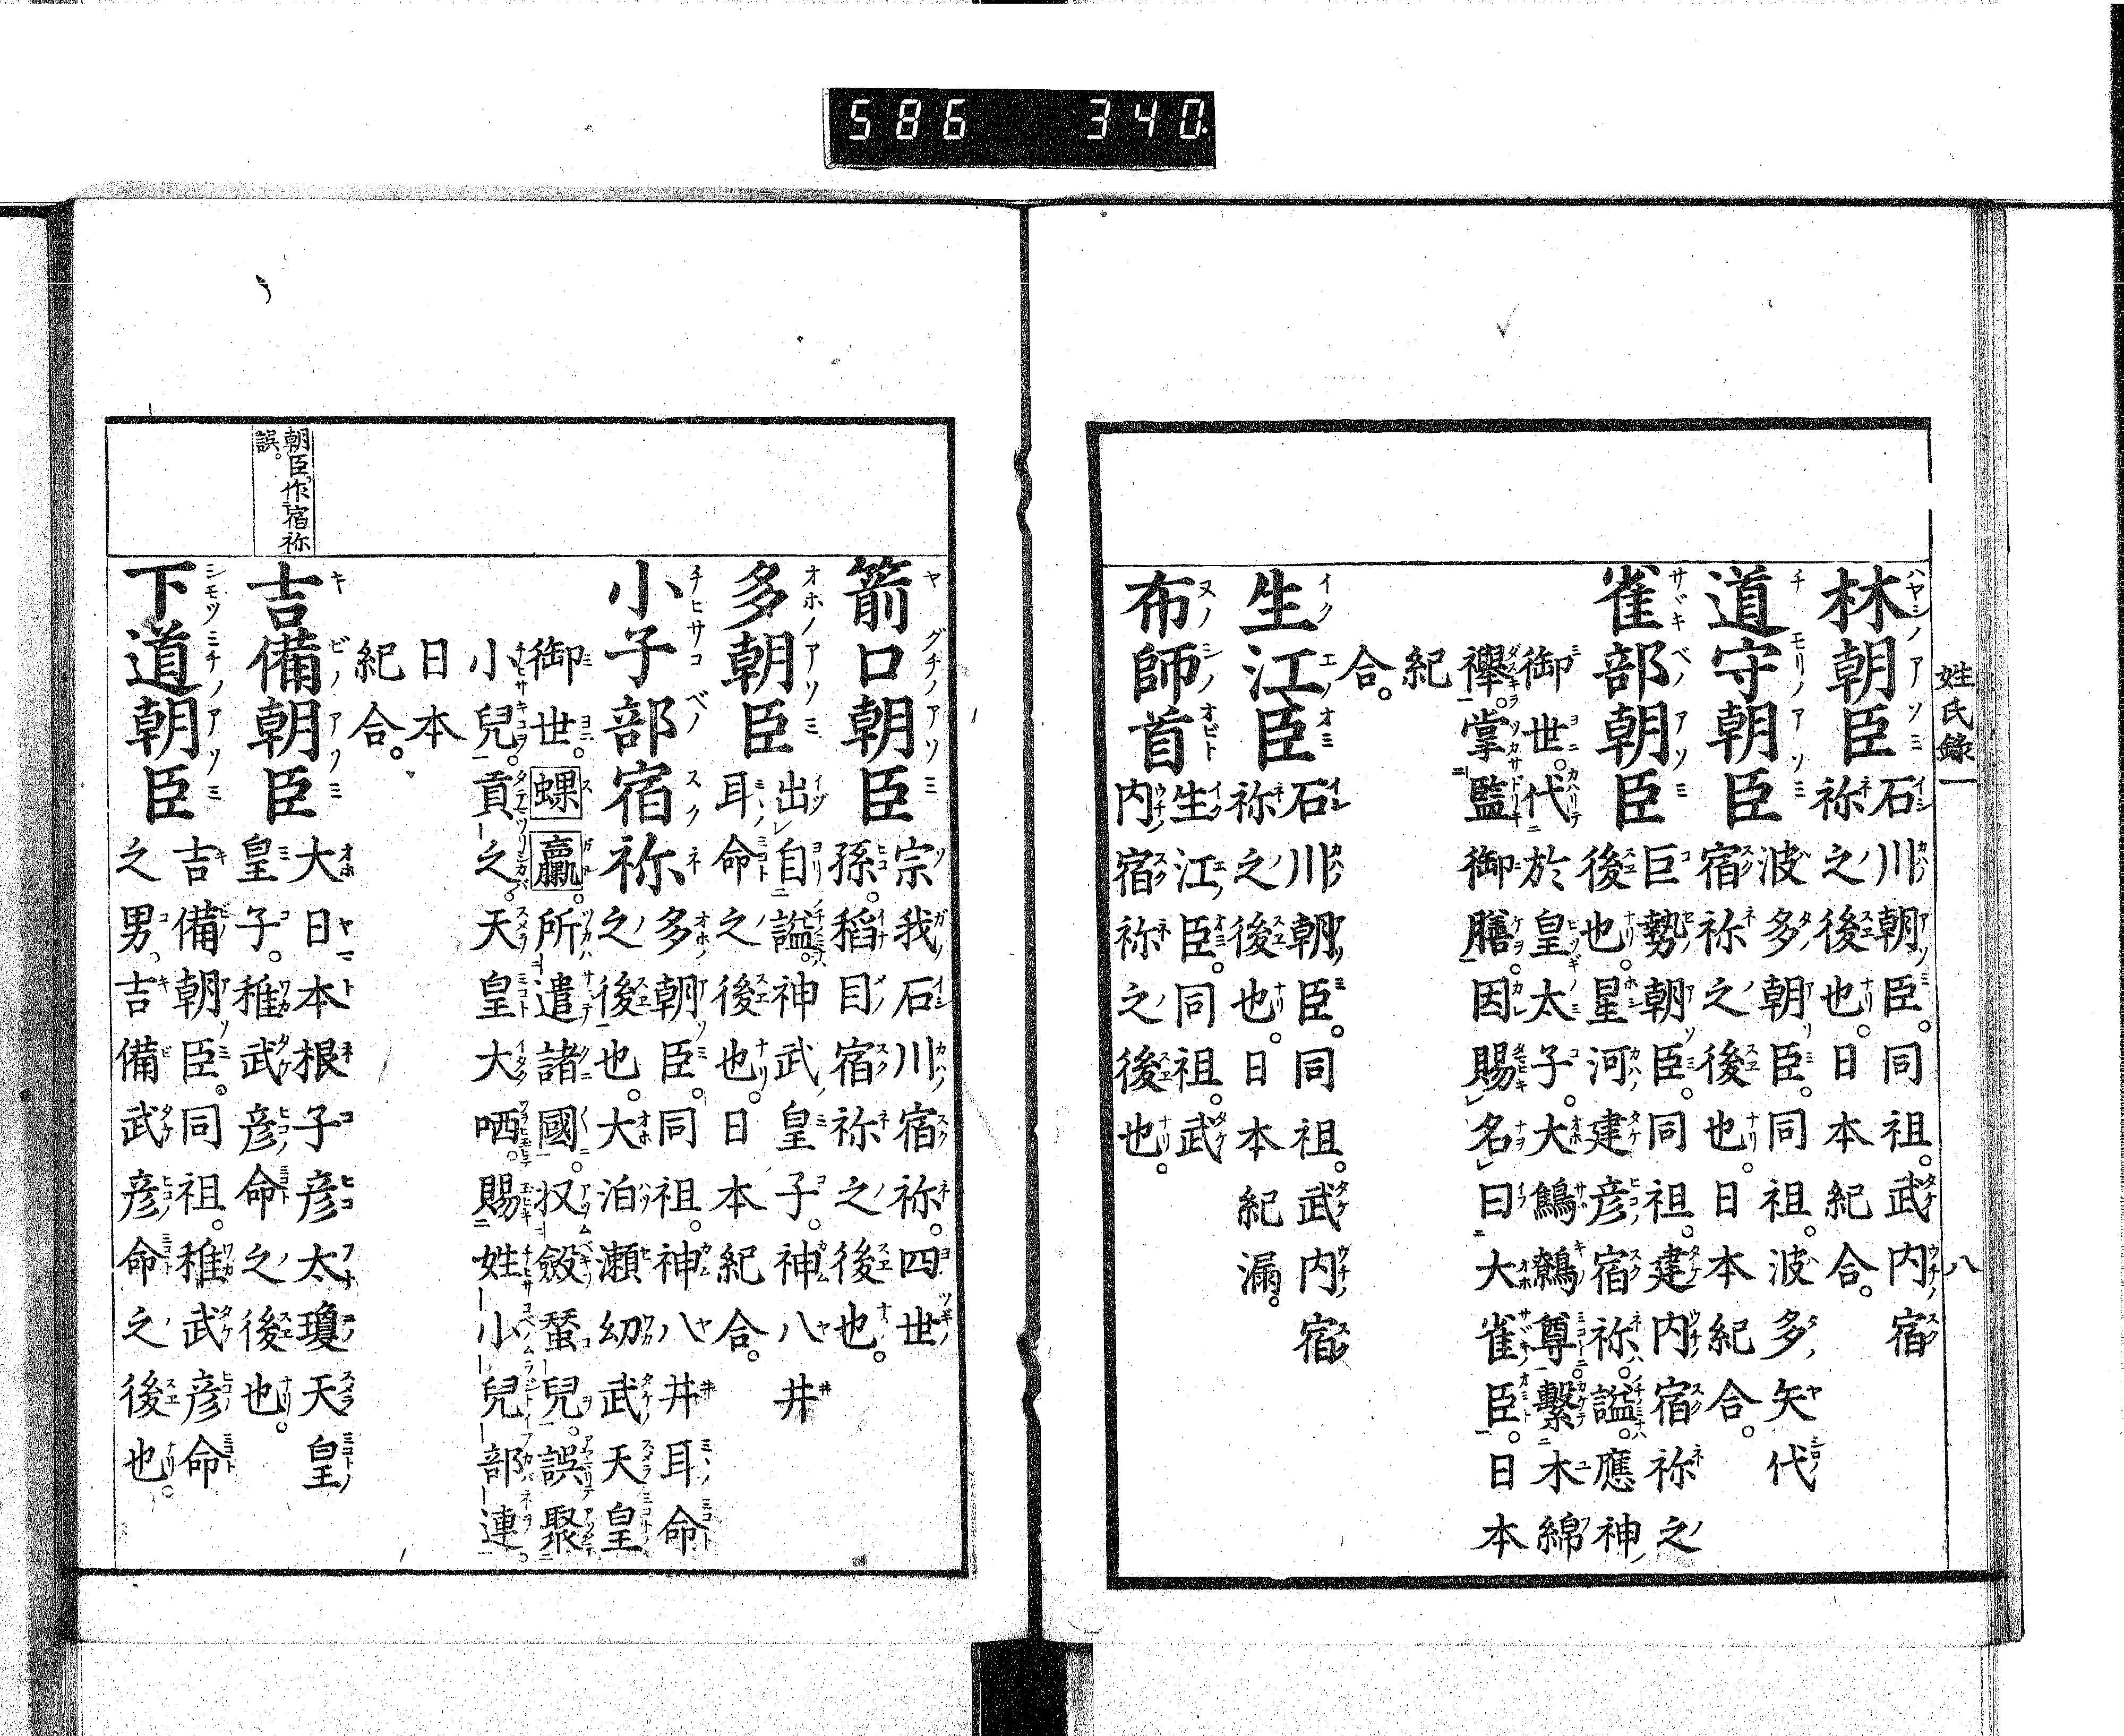 586 340.
姓氏錄一 八
林朝臣 石川朝臣。同祖。武内宿
祢之後也。日本紀合。
道守朝臣 波多朝臣。同祖。波多矢代
宿祢之後也。日本紀合。
雀部朝臣 巨勢朝臣。同祖。建内宿祢之
後也。星河建彦宿祢。謚。應神
御世。代於皇太子。大鷦鷯尊。繫木綿
襷。掌監御膳。因賜名曰大雀臣。日本
紀
合。
生江臣 石川朝臣。同祖。武内宿
祢之後也。日本紀漏。
布師首 生江臣。同祖。武
内宿祢之後也。
箭口朝臣 宗我石川宿祢。四世
孫。稻目宿祢之後也。
多朝臣 出自謚。神武皇子。神八井
耳命之後也。日本紀合。
小子部宿祢 多朝臣。同祖。神八井耳命
之後也。大泊瀬幼武天皇
御世。蜾蠃。所遣諸國。収斂蚕兒。誤聚
小兒。貢之。天皇大哂。賜姓小兒部連。
日本
紀合。
朝臣、作宿祢
誤。
吉備朝臣 大日本根子彦太瓊天皇
皇子。稚武彦命之後也。
下道朝臣 吉備朝臣。同祖。稚武彦命
之男。吉備武彦命之後也。